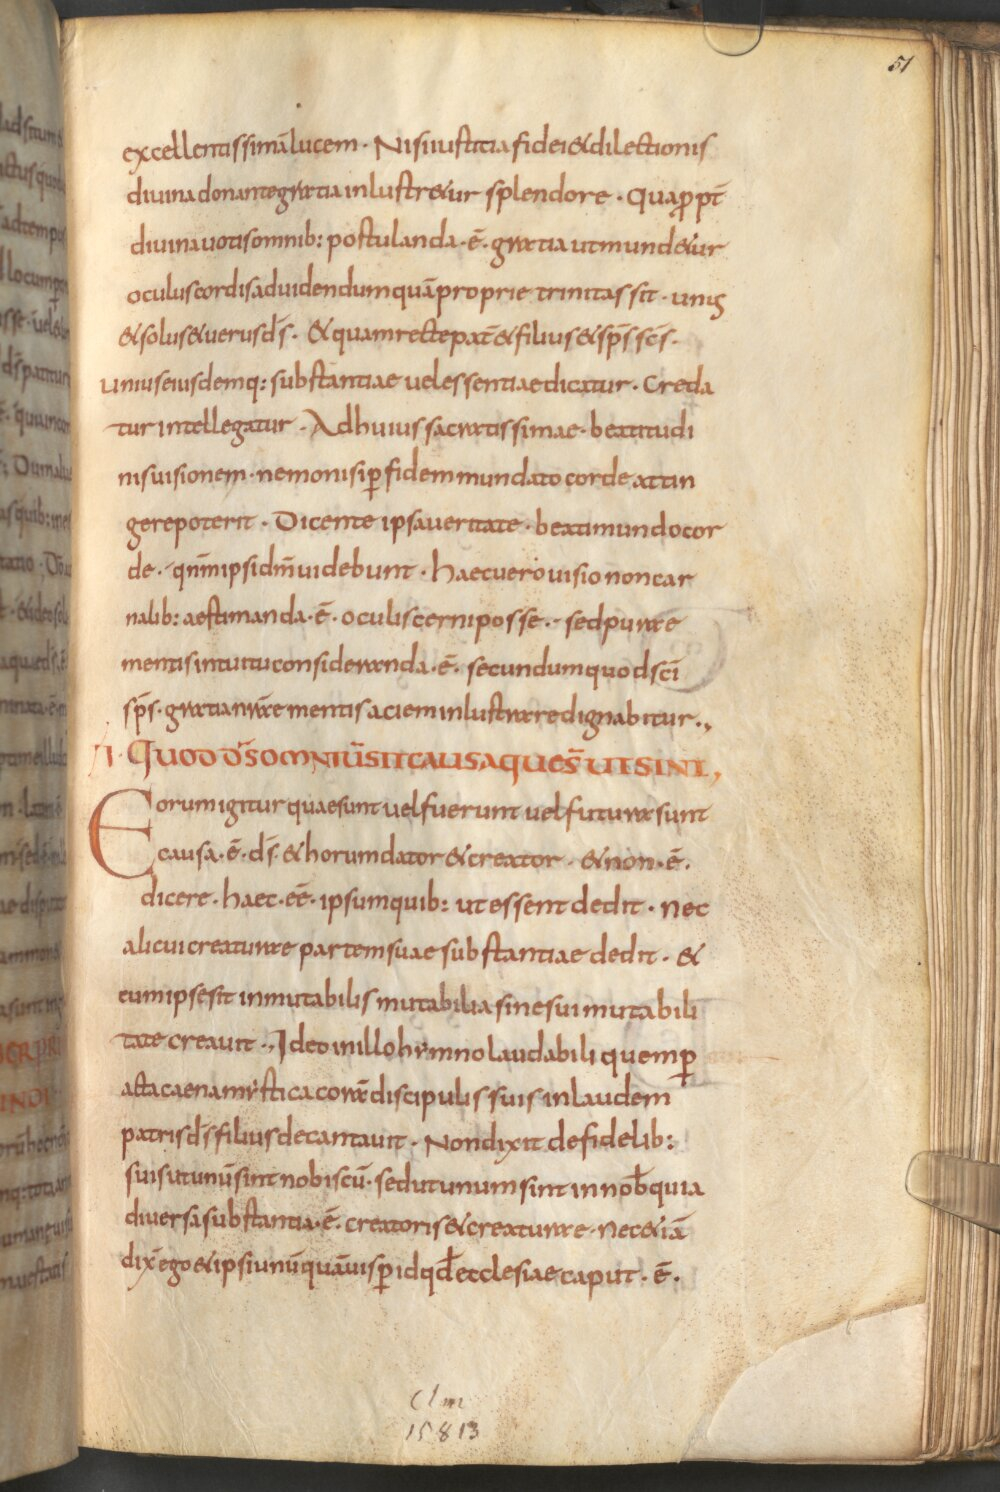 51
excellentissimā lucem · Nisi iustitia fidei & dilectionis
divina donante gratia inlustr&ur splendore · Quapropt̄
divina votis omnib: postulanda · ē · gratia ut mund&ur
oculus cordis ad videndum quā proprie trinitas sit · unus
& solus & verus d̄s · & quam recte pat̄ & filius & sp̄s sc̄s ·
unius eiusdemq: substantiae vel essentiae dicatur · Creda
tur intellegatur · Ad huius sacratissimae · beatitudi
nis visionem · nemo nisi ꝑ fidem mundato corde attin
gere poterit · Dicente ipsa veritate · beati mundo cor
de · qnm̄ ipsi dm̄ videbunt · haec vero visio non car
nalib: aestimanda · ē · oculis cerni posse · sed purae
mentis intuitu consideranda · ē · secundum quod sc̄i
sp̄s · gratia nr̄ae mentis aciem inlustrare dignabitur ·,
QUOD D̄S OMNIŪ SIT CAUSA QUE S̄ UT SINT,
Eorum igitur quae sunt vel fuerunt vel futura sunt
causa · ē · d̄s · & horum dator & creator · & non · ē ·
dicere · haec · eē · ipsum quib: ut essent dedit · nec
alicui creaturae partem suae substantiae dedit · &
cum ipse sit inmutabilis mutabilia sine sui mutabili
tate creavit ·, Ideo in illo hẏmno laudabili quem ꝑ
acta caena mẏstica corā discipulis suis in laudem
patris d̄s filius decantavit · Non dixit de fidelib:
suis ut unū sint nobiscū · sed ut unum sint in nob̄ quia
diversa substantia · ē · creatoris & creaturae · nec &iā
dix̄ ego & ipsi unū quāvis ꝑ id qd̄ ecclesiae caput · ē ·
Clm
15813